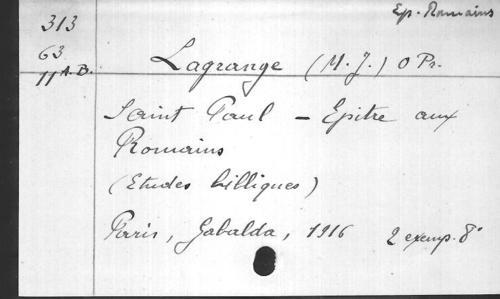 Ep. Romains
313
63
11 A.B.
Lagrange (M. J.) O Pr.
Saint Paul – Epitre aux
Romains
(Etudes bibliques)
Paris, Gabalda, 1916 2 exemp. 8°